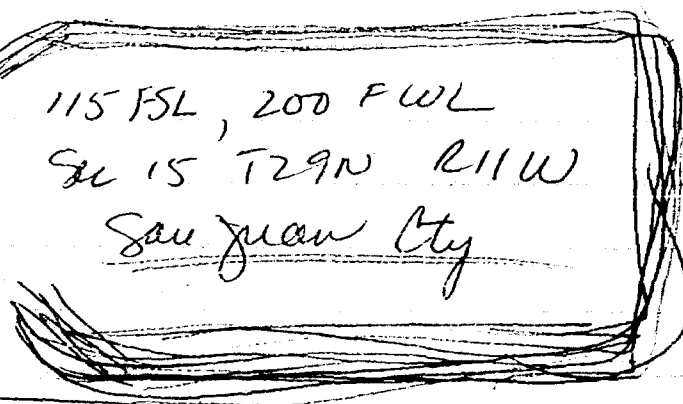 115 FSL, 200 FWL
Sec 15 T29N R11W
San Juan Cty